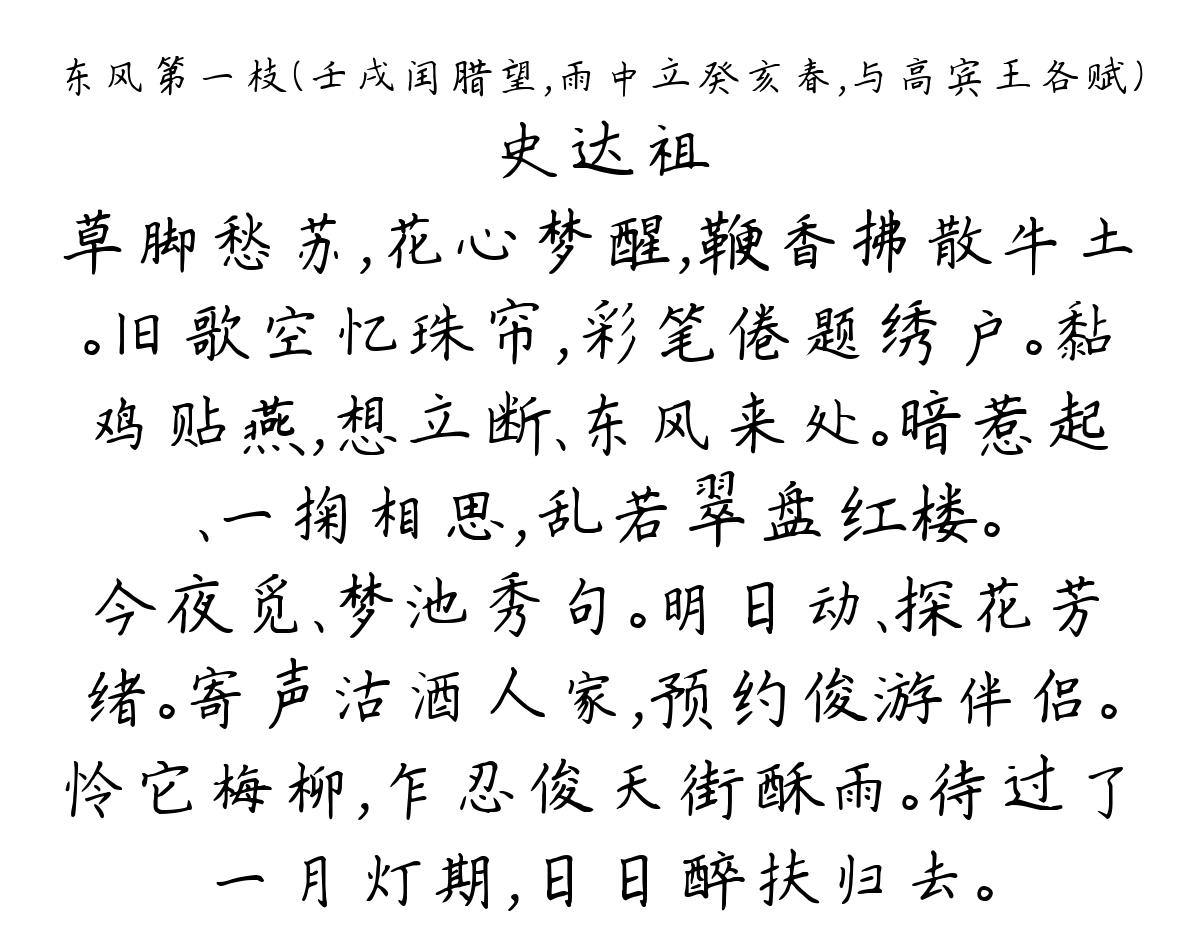 东风第一枝(壬戌闰腊望,雨中立癸亥春,与高宾王各赋)
史达祖
草脚愁苏,花心梦醒,鞭香拂散牛土
。旧歌空忆珠帘,彩笔倦题绣户。黏
鸡贴燕,想立断、东风来处。暗惹起
、一掬相思,乱若翠盘红楼。
今夜觅、梦池秀句。明日动、探花芳
绪。寄声沽酒人家,预约俊游伴侣。
怜它梅柳,乍忍俊天街酥雨。待过了
一月灯期,日日醉扶归去。